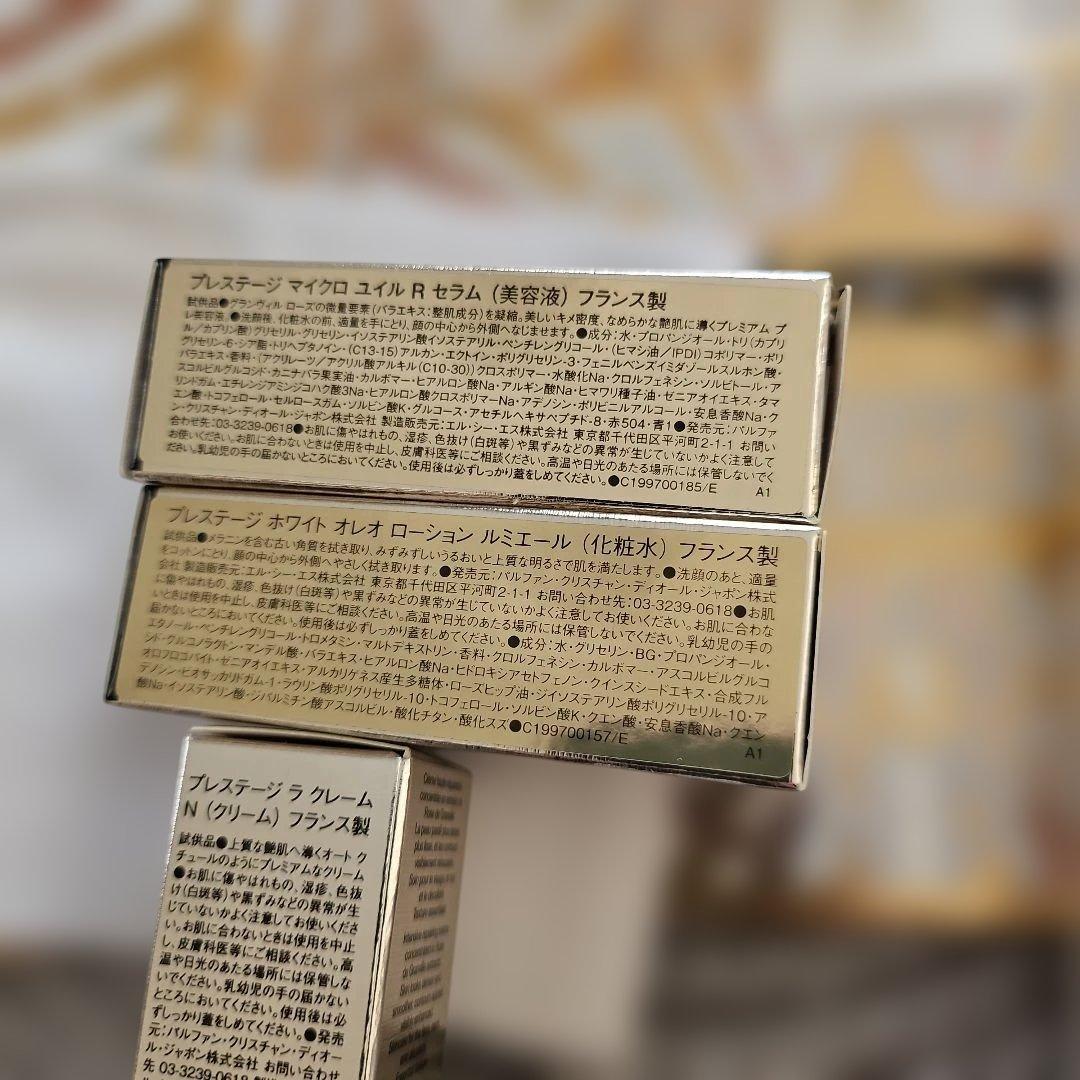 プレステージ マイクロ ユイル R セラム（美容液）フランス製
試供品●グランヴィル ローズの微量要素（バラエキス：整肌成分）を凝縮。美しいキメ密度、なめらかな艶肌に導くプレミアム プ
レ美容液。●洗顔後、化粧水の前、適量を手にとり、顔の中心から外側へなじませます。●成分：水・プロパンジオール・トリ（カプリ
ル／カプリン酸）グリセリル・グリセリン・イソステアリン酸イソステアリル・ペンチレングリコール・（ヒマシ油／IPDI）コポリマー・ポリ
グリセリン-6・シア脂・トリヘプタノイン・（C13-15）アルカン・エクトイン・ポリグリセリン-3・フェニルベンズイミダゾールスルホン酸・
バラエキス・香料・（アクリレーツ／アクリル酸アルキル（C10-30））クロスポリマー・水酸化Na・クロルフェネシン・ソルビトール・ア
スコルビルグルコシド・カニナバラ果実油・カルボマー・ヒアルロン酸Na・アルギン酸Na・ヒマワリ種子油・ゼニアオイエキス・タマ
リンドガム・エチレンジアミンジコハク酸3Na・ヒアルロン酸クロスポリマーNa・アデノシン・ポリビニルアルコール・安息香酸Na・ク
エン酸・トコフェロール・セルロースガム・ソルビン酸K・グルコース・アセチルヘキサペプチド-8・赤504・青1●発売元：パルファ
ン・クリスチャン・ディオール・ジャポン株式会社 製造販売元：エル・シー・エス株式会社 東京都千代田区平河町2-1-1 お問い
合わせ先：03-3239-0618●お肌に傷やはれもの、湿疹、色抜け（白斑等）や黒ずみなどの異常が生じていないかよく注意して
お使いください。お肌に合わないときは使用を中止し、皮膚科医等にご相談ください。高温や日光のあたる場所には保管しないでく
ださい。乳幼児の手の届かないところにおいてください。使用後は必ずしっかり蓋をしめてください。●C199700185/E A1
プレステージ ホワイト オレオ ローション ルミエール（化粧水）フランス製
試供品●メラニンを含む古い角質を拭き取り、みずみずしいうるおいと上質な明るさで肌を満たします。●洗顔のあと、適量
をコットンにとり、顔の中心から外側へやさしく拭き取ります。●発売元：パルファン・クリスチャン・ディオール・ジャポン株式
会社 製造販売元：エル・シー・エス株式会社 東京都千代田区平河町2-1-1 お問い合わせ先：03-3239-0618●お肌
に傷やはれもの、湿疹、色抜け（白斑等）や黒ずみなどの異常が生じていないかよく注意してお使いください。お肌に合わな
いときは使用を中止し、皮膚科医等にご相談ください。高温や日光のあたる場所には保管しないでください。乳幼児の手の
届かないところにおいてください。使用後は必ずしっかり蓋をしめてください。●成分：水・グリセリン・BG・プロパンジオール・
エタノール・ペンチレングリコール・トロメタミン・マルトデキストリン・香料・クロルフェネシン・カルボマー・アスコルビルグルコ
シド・グルコノラクトン・マンデル酸・バラエキス・ヒアルロン酸Na・ヒドロキシアセトフェノン・クインスシードエキス・合成フル
オロフロゴパイト・ゼニアオイエキス・アルカリゲネス産生多糖体・ローズヒップ油・ジイソステアリン酸ポリグリセリル-10・ア
デノシン・ビオサッカリドガム-1・ラウリン酸ポリグリセリル-10・トコフェロール・ソルビン酸K・クエン酸・安息香酸Na・クエン
酸Na・イソステアリン酸・ジパルミチン酸アスコルビル・酸化チタン・酸化スズ●C199700157/E A1
プレステージ ラ クレーム
N（クリーム）フランス製
試供品●上質な艶肌へ導くオート ク
チュールのようにプレミアムなクリーム
●お肌に傷やはれもの、湿疹、色抜
け（白斑等）や黒ずみなどの異常が生
じていないかよく注意してお使いくださ
い。お肌に合わないときは使用を中止
し、皮膚科医等にご相談ください。高
温や日光のあたる場所には保管しな
いでください。乳幼児の手の届かない
ところにおいてください。使用後は必
ずしっかり蓋をしめてください。●発売
元：パルファン・クリスチャン・ディオー
ル・ジャポン株式会社 お問い合わせ
先 03-3239-0618